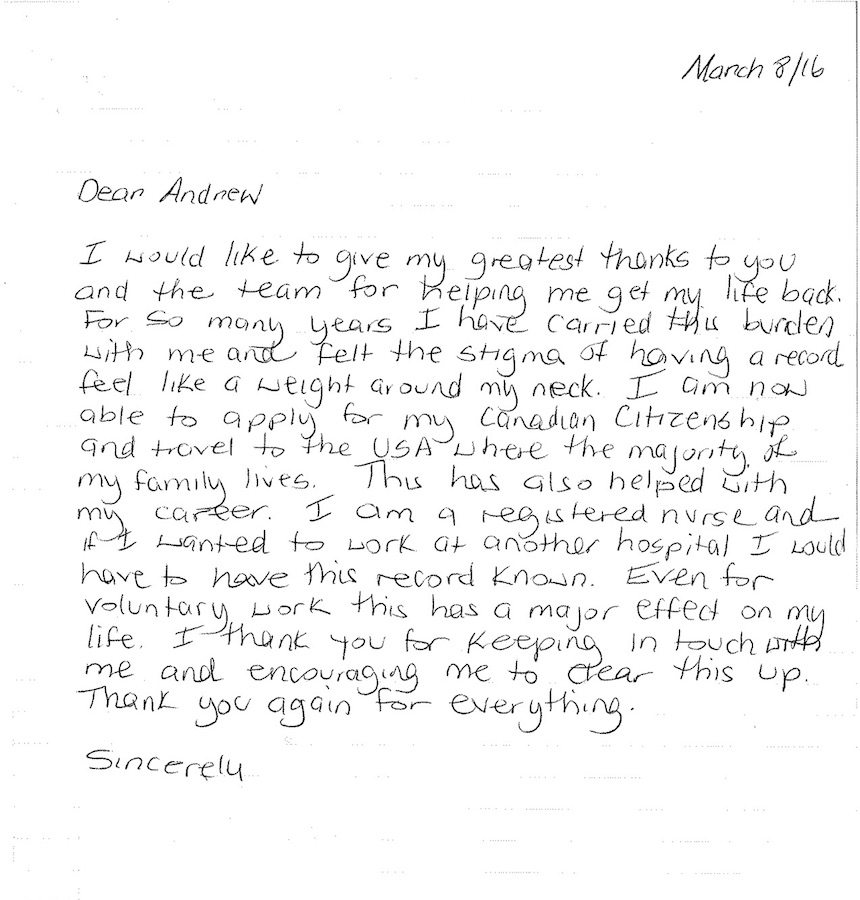 March 8/16
Dear Andrew
I would like to give my greatest thanks to you
and the team for helping me get my life back.
For so many years I have carried this burden
with me and felt the stigma of having a record
feel like a weight around my neck. I am now
able to apply for my Canadian Citizenship
and travel to the USA where the majority of
my family lives. This has also helped with
my career. I am a registered nurse and
if I wanted to work at another hospital I would
have to have this record known. Even for
voluntary work this has a major effect on my
life. I thank you for keeping in touch with
me and encouraging me to clear this up.
Thank you again for everything.
Sincerely